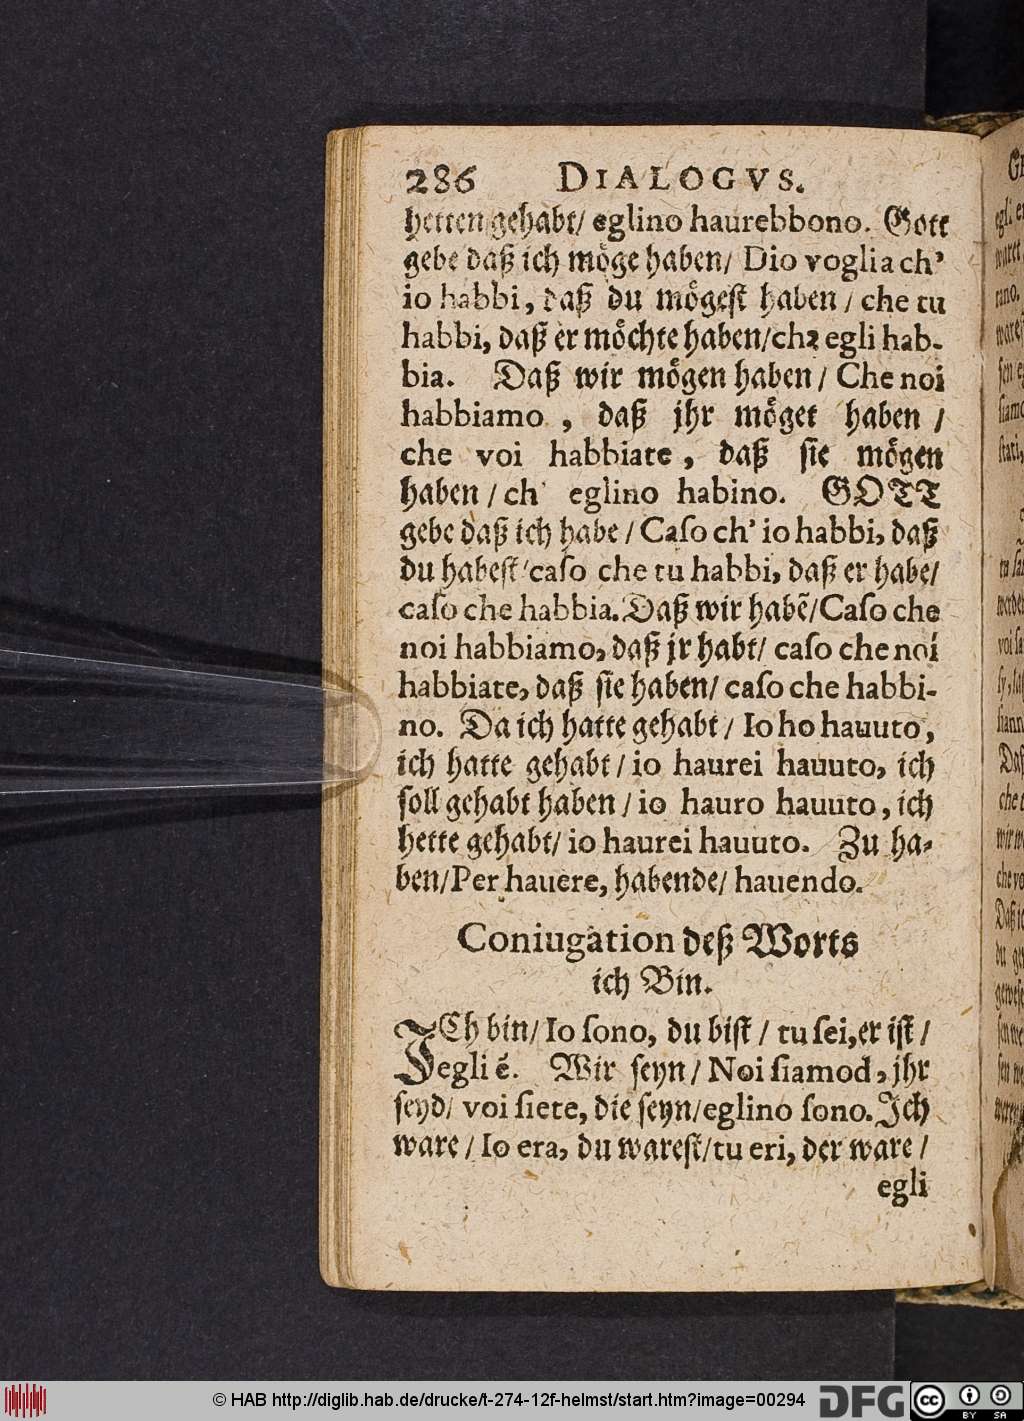 286 DIALOGVS.
hetten gehabt/ eglino haurebbono. Gott
gebe daß ich möge haben/ Dio voglia ch’
io habbi, daß du mögest haben / che tu
habbi, daß er möchte haben/che egli hab-
bia. Daß wir mögen haben / Che noi
habbiamo , daß jhr möget haben /
che voi habbiate , daß sie mögen
haben / ch’ eglino habino. GOTT
gebe daß ich habe / Caſo ch’ io habbi, daß
du habest/caſo che tu habbi, daß er habe/
caſo che habbia. Daß wir habẽ/Caſo che
noi habbiamo, daß jr habt/ caſo che noi
habbiate, daß sie haben/ caſo che habbi-
no. Da ich hatte gehabt / Io ho hauuto,
ich hatte gehabt / io haurei hauuto, ich
soll gehabt haben / io hauro hauuto, ich
hette gehabt/ io haurei hauuto. Zu ha-
ben/Per hauere, habende/ hauendo.
Coniugation deß Worts
ich Bin.
ICh bin/ Io ſono, du bist / tu ſei, er ist /
egli é. Wir seyn / Noi ſiamod, jhr
seyd/ voi ſiete, die seyn/eglino ſono. Ich
ware / Io era, du warest/tu eri, der ware /
egli
© HAB http://diglib.hab.de/drucke/t-274-12f-helmst/start.htm?image=00294
DFG
cc BY SA